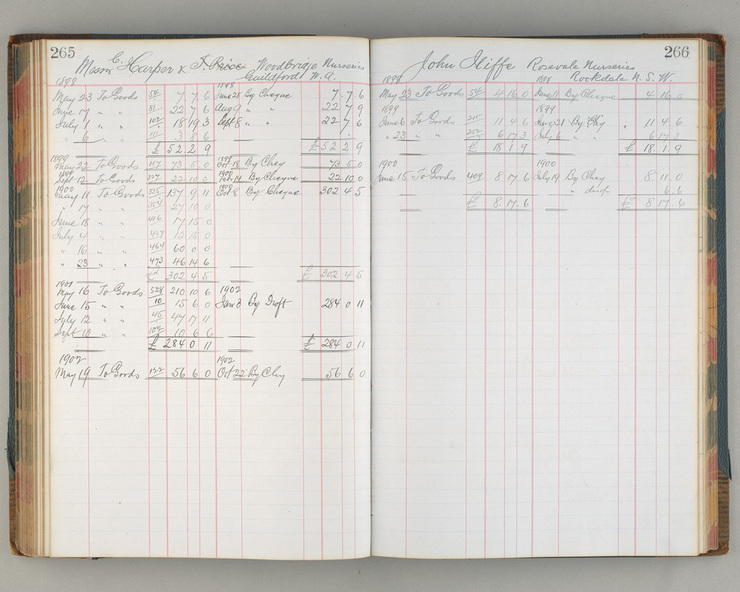 265
Messrs C. Harper & J. Price Woodbridge Nurseries
Guildford W. A.
1898 1898
May 23 To Goods 54 7 7 6 June 28 By Cheque 7 7 6
June 17 " " 81 22 7 6 Aug 9 " " 22 7 9
July 1 " " 102 18 19 3 Sept 8 " " 22 7 6
£ 52 2 9 £ 52 2 9
1899
May 22 To Goods 157 73 5 0 Oct 18 By Cheq 73 5 0
1899 1900
Sept 12 To Goods 22 10 0 Feb 14 By Cheque 22 10 0
1900
May 11 To Goods 137 9 11 Oct 8 By Cheque 302 4 5
" 17 " " 27 10 0
June 18 " " 416 17 15 0
July 4 " " 437 13 15 0
" 16 " " 464 60 0 0
" 23 " " 473 46 14 6
£ 302 4 5 £ 302 4 5
1901 1902
May 16 To Goods 528 210 10 6
June 15 " " 10 15 6 0 Jan 8 By Draft 284 0 11
July 12 " " 45 47 17 11
Sept 18 " " 102 10 6 6
£ 284 0 11 £ 284 0 11
1902 1902
May 19 To Goods 122 56 6 0 Oct 22 By Chq 56 6 0
266
John Iliffe Rosevale Nurseries
Rockdale N. S. W.
1898 1898
May 23 To Goods 54 4 16 0 June 11 By Cheque 4 16 0
1899 1899
June 6 To Goods 215 11 4 6 Aug 21 By Chq 11 4 6
" 23 " " 252 6 17 3 July 6 " " 6 17 3
£ 18 1 9 £ 18 1 9
1900 1900
June 15 To Goods 409 8 17 6 July 19 By Cheq 8 11 0
" " disct 6 6
£ 8 17 6 £ 8 17 6